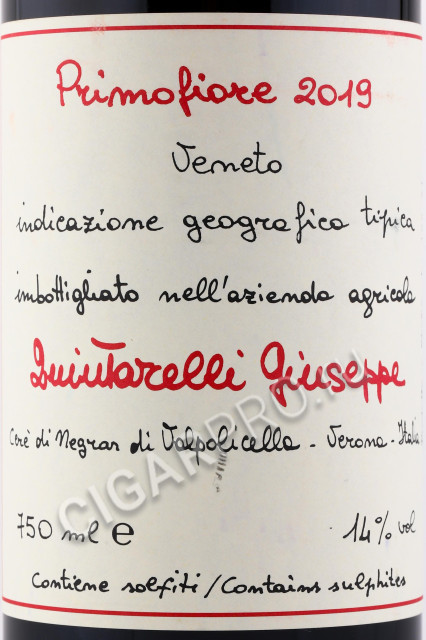 Primofiore 2019
Veneto
indicazione geografica tipica
imbottigliato nell'azienda agricola
Quintarelli Giuseppe
Cerè di Negrar di Valpolicella - Verona - Italia
CIGARPRO.RU
750 ml e 14% vol
Contiene solfiti / Contains sulphites